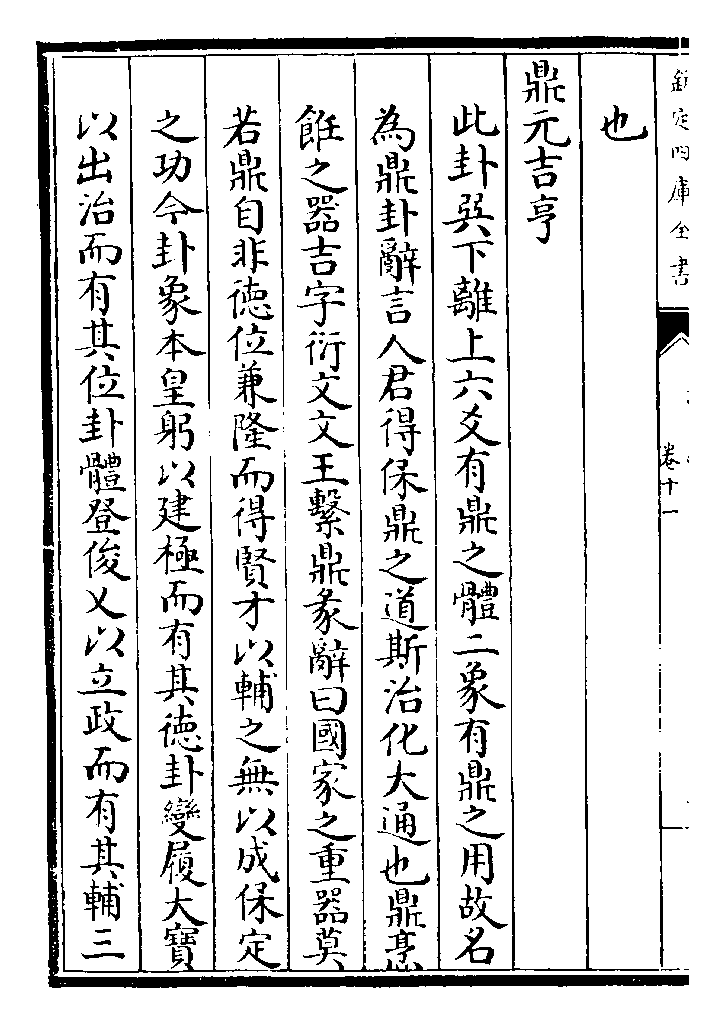 欽定四庫全書
卷十一
也
鼎元吉亨
此卦巽下離上六爻有鼎之體二象有鼎之用故名
為鼎卦辭言人君得保鼎之道斯治化大通也鼎烹
飪之器吉字衍文文王繫鼎彖辭曰國家之重器莫
若鼎自非德位兼隆而得賢才以輔之無以成保定
之功今卦象本皇躬以建極而有其德卦變履大寶
以出治而有其位卦體登俊乂以立政而有其輔三